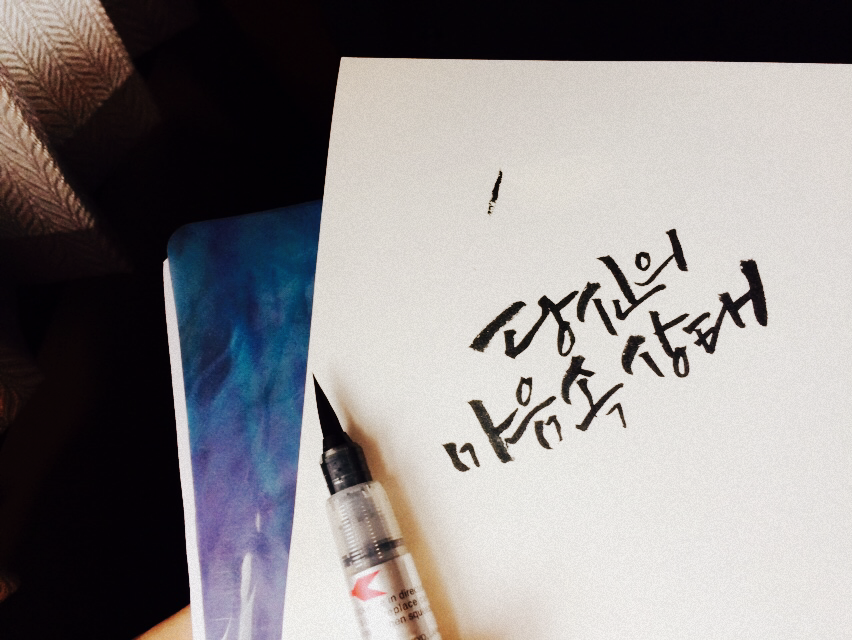 당신의
마음속 상태
in direc
place
pen squ